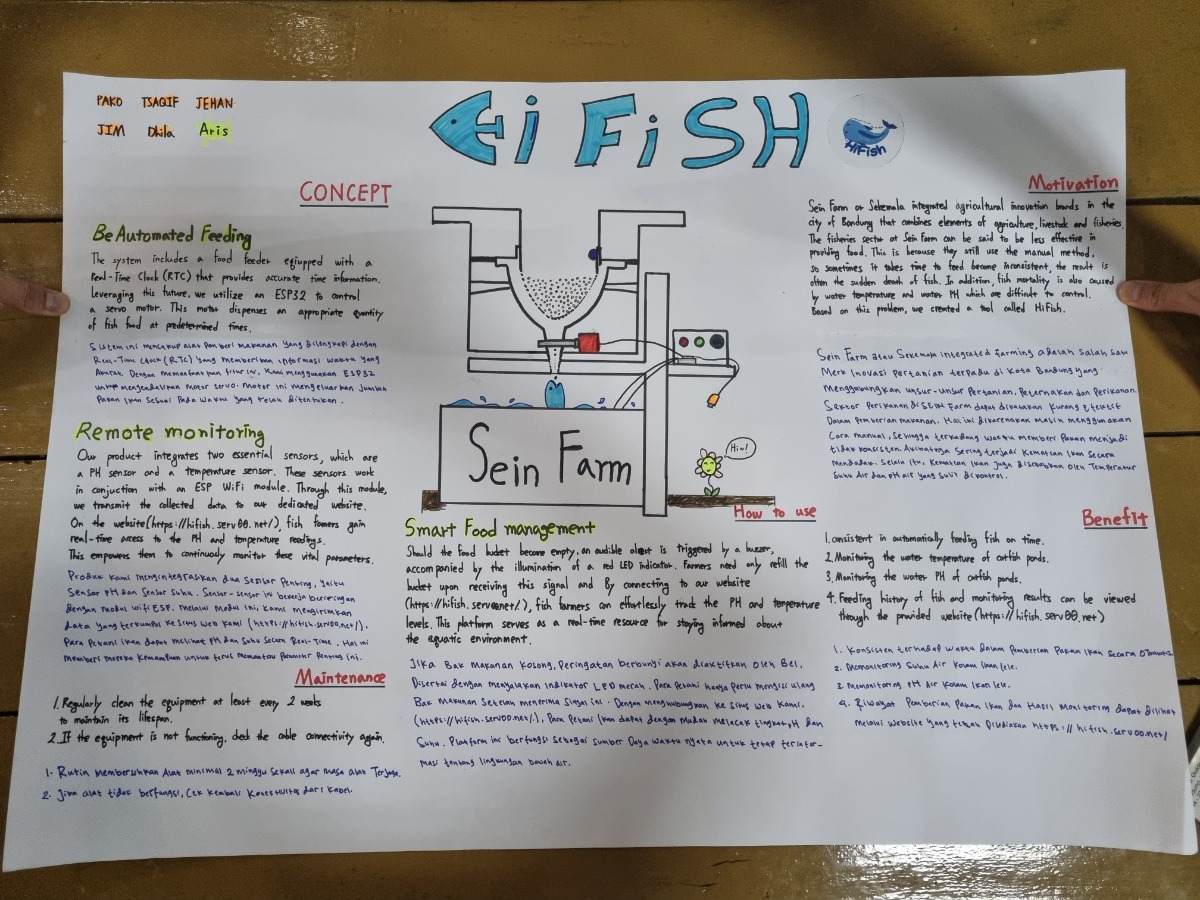 PAKO TSAQIF JEHAN
JIM Dhila Aris
Hi FiSH
HiFish
CONCEPT
Be Automated Feeding
The system includes a food feeder equipped with a
Real-Time Clock (RTC) that provides accurate time information.
Leveraging this future, we utilize an ESP32 to control
a servo motor. This motor dispenses an appropriate quantity
of fish food at predetermined times.
Sistem ini mencakup alat pemberi makanan yang dilengkapi dengan
Real-Time Clock (RTC) yang memberikan informasi waktu yang
Akurat. Dengan memanfaatkan fitur ini, kami menggunakan ESP32
untuk mengendalikan motor servo. Motor ini mengeluarkan Jumlah
Pakan ikan sesuai Pada waktu yang telah ditentukan.
Remote monitoring
Our product integrates two essential sensors, which are
a PH sensor and a temperature sensor. These sensors work
in conjuction with an ESP WiFi module. Through this module,
we transmit the collected data to our dedicated website.
On the website (https://hifish.serv00.net/), fish famers gain
real-time access to the PH and temperature readings.
This empowers them to continuosly monitor these vital parameters.
Produk kami mengintegrasikan dua Sensor Penting, Yaitu
Sensor pH dan Sensor Suhu. Sensor-sensor ini bekerja beriringan
dengan modul wifi ESP. melalui Modul ini, kami mengirimkan
data yang terkumpul ke situs web kami (https://hifish.serv00.net/).
Para Petani ikan dapat melihat pH dan Suhu secara Real-Time. Hal ini
memberi mereka Kemampuan untuk terus memantau Parameter Penting ini.
Maintenance
1. Regularly clean the equipment at least every 2 weeks
to maintain its lifespan.
2. If the equipment is not functioning, check the cable connectivity again.
1. Rutin Membersihkan Alat minimal 2 minggu sekali agar masa alat Terjaga.
2. Jika alat tidak berfungsi, Cek Kembali Konektivitas dari Kabel.
Sein Farm
Hii!
How to use
Smart Food management
Should the food bucket become empty, an audible alert is triggered by a buzzer,
accompanied by the illumination of a red LED indicator. Farmers need only refill the
bucket upon receiving this signal and By connecting to our website
(https://hifish.serv00net/), fish farmers can effortlessly track the PH and temperature
levels. This platform serves as a real-time resource for staying informed about
the aquatic environment.
Jika Bak Makanan Kosong, Peringatan berbunyi akan diaktifkan oleh Bel,
Disertai dengan menyalakan Indikator LED merah. Para Petani hanya Perlu mengisi ulang
Bak Makanan Setelah menerima Sinyal ini. Dengan menghubungkan Ke Situs Web Kami,
(https://hifish.serv00.net/), Para Petani Ikan dapat dengan mudah melacak tingkat pH dan
Suhu. Platform ini berfungsi sebagai sumber Daya waktu nyata untuk tetap terinfor-
masi tentang lingkungan bawah air.
Motivation
Sein Farm or Sekemala integrated agricultural innovation brands in the
city of Bandung that combines elements of agriculture, livestock and fisheries.
The fisheries sector at Sein Farm can be said to be less effective in
providing food. This is because they still use the manual method,
so sometimes it takes time to feed become inconsistent, the result is
often the sudden death of fish. In addition, fish mortality is also caused
by water temperature and water PH which are difficult to control.
Based on this problem, we created a tool called HiFish.
Sein Farm atau Sekemala integrated farming adalah salah satu
Merk Inovasi Pertanian terpadu di Kota Bandung Yang
Menggabungkan unsur-unsur Pertanian, Peternakan dan Perikanan.
Sektor Perikanan di Sein Farm dapat dikatakan kurang efektif
Dalam Pemberian makanan. Hal ini dikarenakan masih menggunakan
Cara manual, Sehingga terkadang waktu memberi Pakan menjadi
tidak konsisten. Akibatnya Sering terjadi Kematian Ikan Secara
Mendadak. Selain itu, Kematian Ikan Juga disebabkan oleh Temperatur
Suhu Air dan pH air yang sulit dikontrol.
Benefit
1. consistent in automatically feeding fish on time.
2. Monitoring the water temperature of catfish ponds.
3. Monitoring the water PH of catfish ponds.
4. Feeding history of fish and monitoring results can be viewed
through the provided website (https://hifish.serv00.net)
1. Konsisten terhadap waktu Dalam Pemberian Pakan Ikan Secara Otomatis
2. Memonitoring Suhu Air Kolam Ikan lele.
2. Memonitoring pH Air Kolam Ikan lele.
4. Riwayat Pemberian Pakan Ikan dan Hasil Monitoring dapat dilihat
melalui Website Yang telah Disediakan https://hifish.serv00.net/